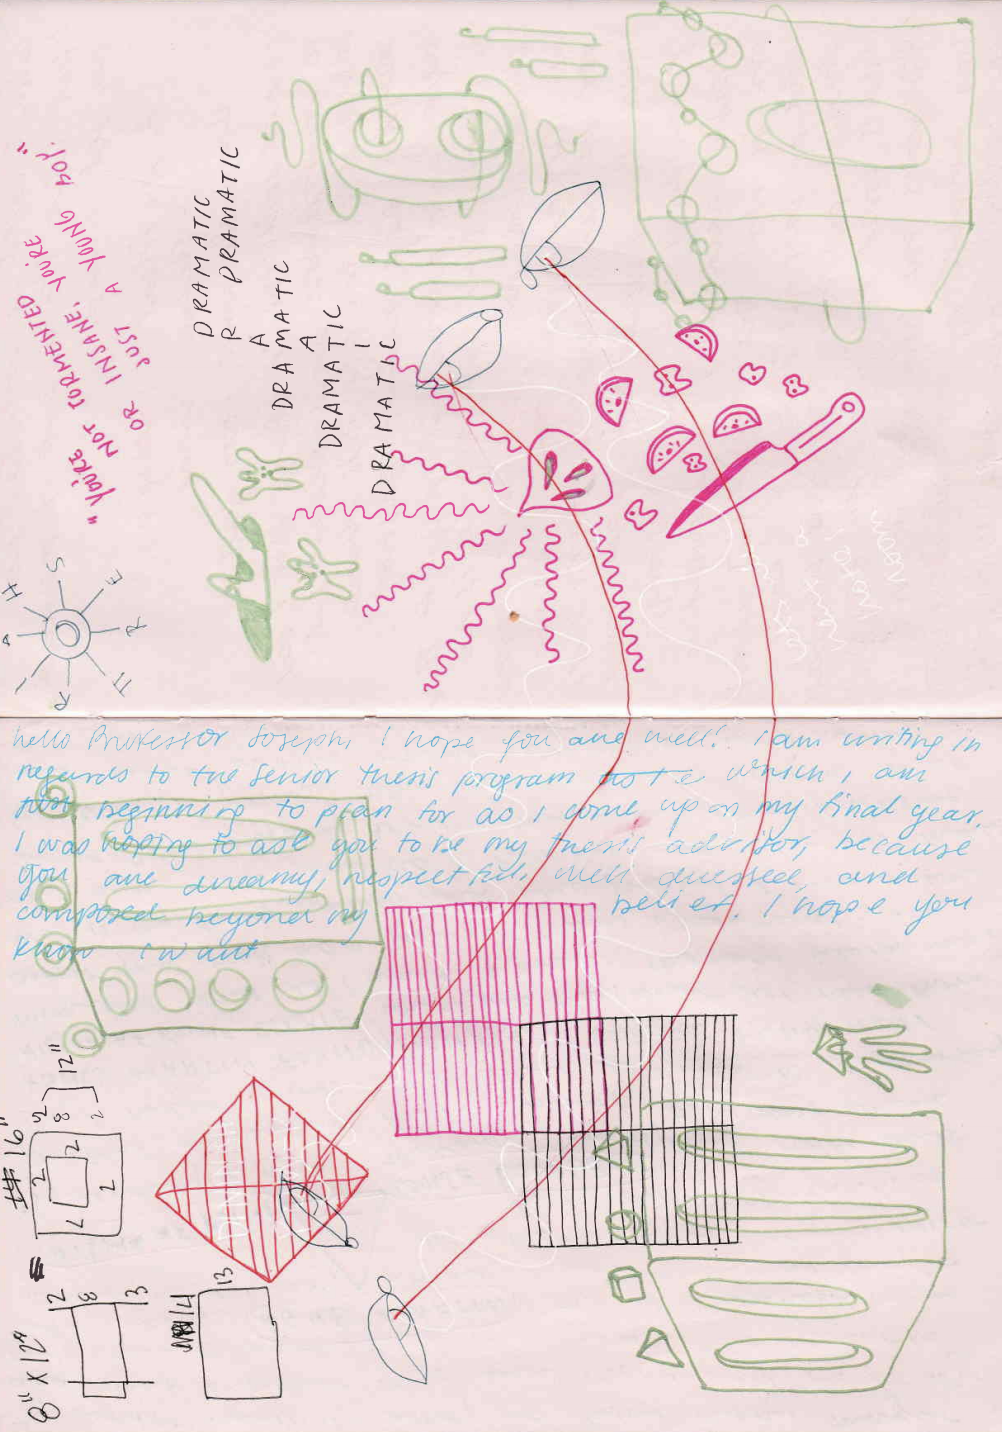 "YOU'RE NOT TORMENTED
OR INSANE, YOU'RE
JUST A YOUNG BOY."
DRAMATIC
R DRAMATIC
A
DRAMATIC
A
DRAMATIC
I
DRAMATIC
S
H
E
hello Professor Joseph, I hope you are well! I am writing in
regards to the senior thesis program which I am
just beginning to plan for as I come up on my final year.
I was hoping to ask you to be my thesis advisor, because
you are dreamy, respectful, well dressed, and
composed beyond my belief. I hope you
know I want
16"
12"
2
8
2
2
2
2
2
=
8" x 12"
2
8
3
14
13